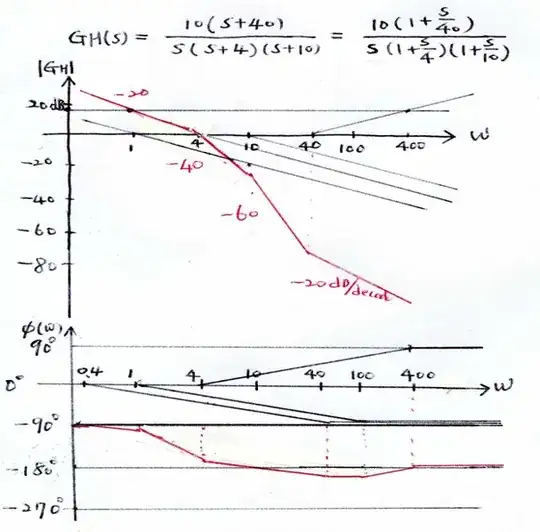 GH(s) = 10(s+40) / s(s+4)(s+10) = 10(1+s/40) / s(1+s/4)(1+s/10)
|GH|
-20
20dB
1 4 10 40 100 400 W
-20
-40
-40
-60
-60
-80
-20dB/decad
φ(w)
90°
0° 0.4 1 4 10 40 100 400 W
-90°
-180°
-270°